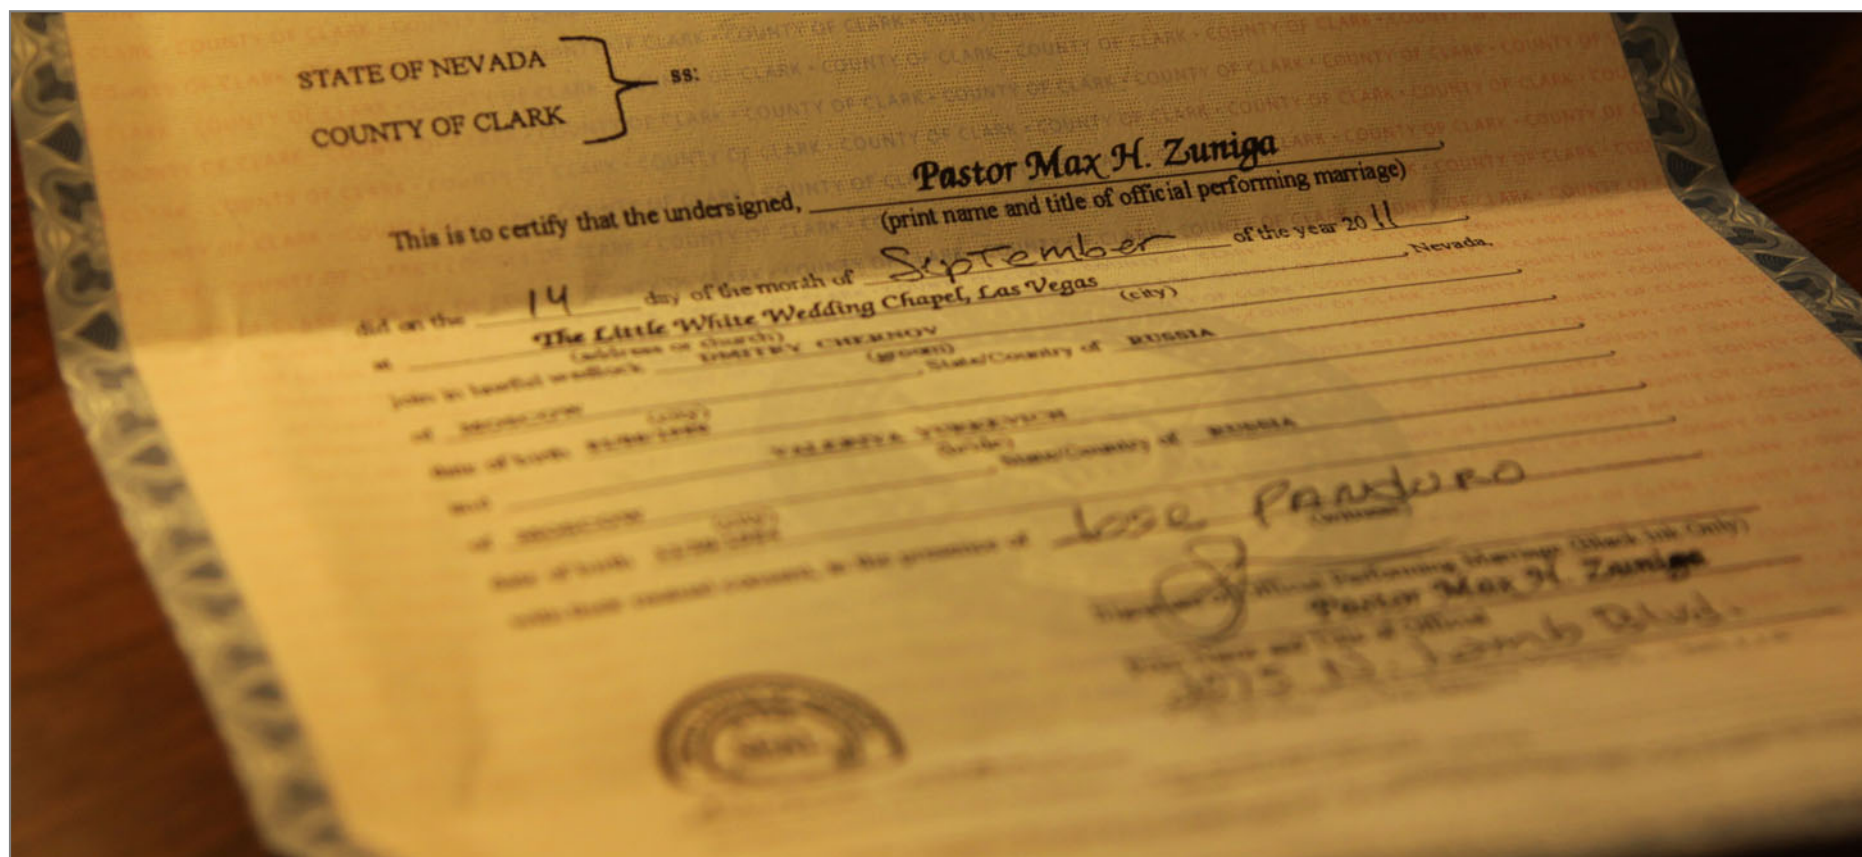 STATE OF NEVADA
COUNTY OF CLARK
ss:
This is to certify that the undersigned, Pastor Max H. Zuniga
(print name and title of official performing marriage)
did on the 14 day of the month of September of the year 2011
at The Little White Wedding Chapel, Las Vegas, Nevada,
(address or church) (city)
join in lawful wedlock DMITRY CHERNOV
(groom)
of MOSCOW, State/Country of RUSSIA
(city)
date of birth
and VALERIYA YURKEVICH
(bride)
of MOSCOW, State/Country of RUSSIA
(city)
date of birth
with their mutual consent, in the presence of Jose PANDURO
(witness)
Signature of Official Performing Marriage (Black Ink Only)
Pastor Max H. Zuniga
Print Name and Title of Official
N. Lamb Blvd.